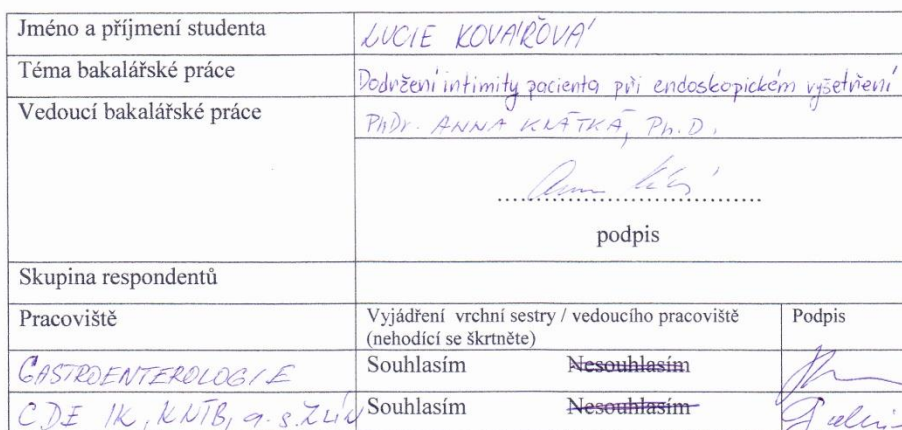 Jméno a příjmení studenta LUCIE KOVÁŘOVÁ
Téma bakalářské práce Dodržení intimity pacienta při endoskopickém vyšetření
Vedoucí bakalářské práce PhDr. ANNA KRÁTKÁ, Ph.D.
podpis
Skupina respondentů
Pracoviště Vyjádření vrchní sestry / vedoucího pracoviště Podpis
(nehodící se škrtněte)
GASTROENTEROLOGIE Souhlasím Nesouhlasím
CDE IK, KNTB, a.s. ZLÍN Souhlasím Nesouhlasím